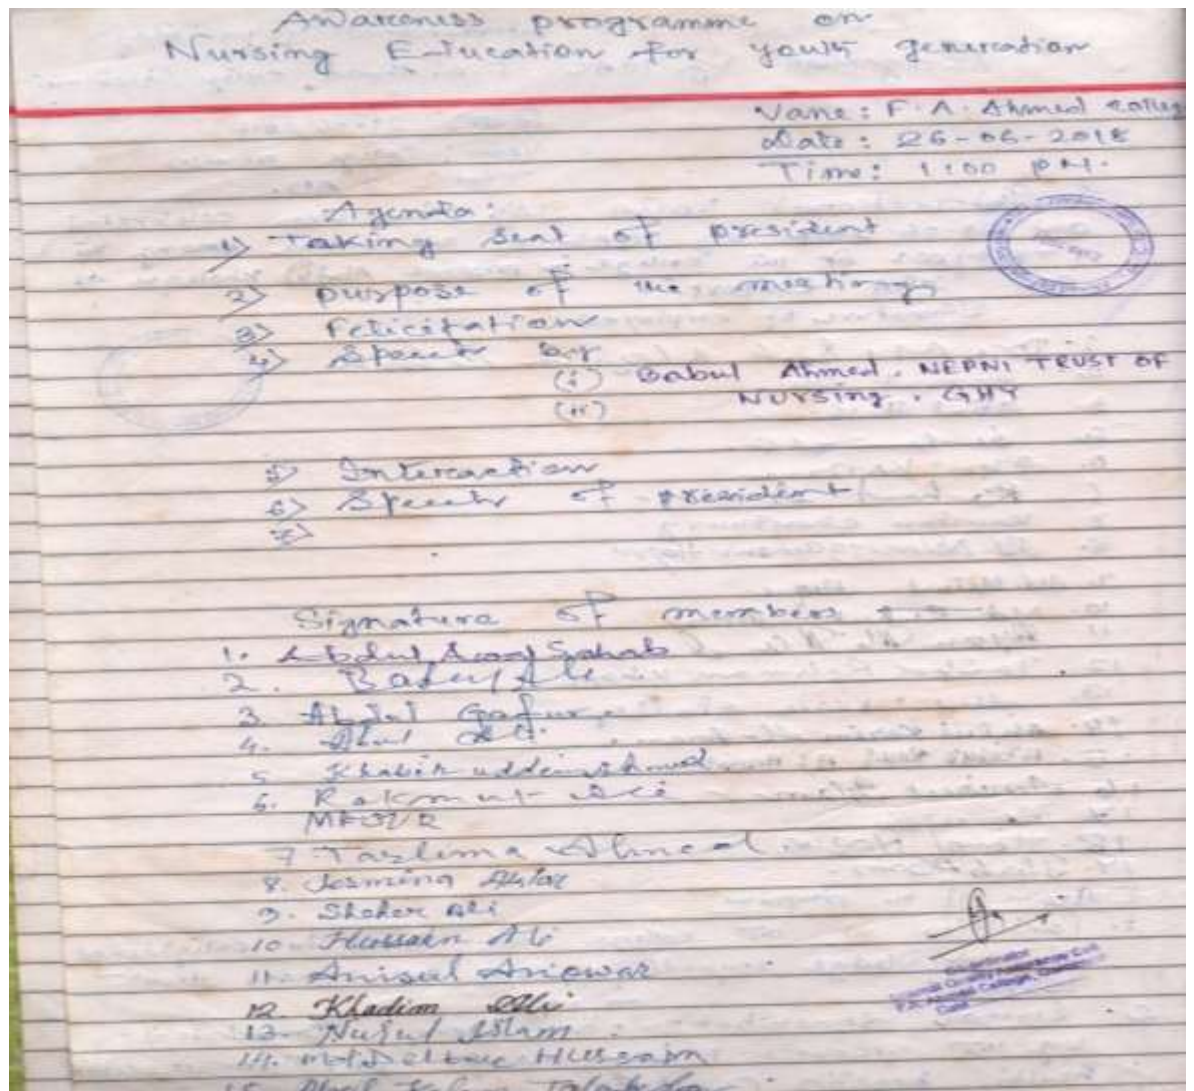 Awareness programme on
Nursing Education for youth generation
Vane: F. A. Ahmed College
Date: 26-06-2018
Time: 1:00 PM.
Agenda:
1) Taking seat of president
2) purpose of the meeting
3) Felicitation
4) Speech by
(i) Babul Ahmed. NEPNI TRUST OF
Nursing. GHY
(ii)
5) Interaction
6) Speech of president
7)
Signature of members
1. Abdul Sahab
2. Ali
3. Abdul Gafur
4. Ali
5. Khabir uddin Ahmed
6. Rakmat Ali
7 Taslima Ahmed
8. Jesmina Aktar
9. Shaher Ali
10 Hussain Ali
11. Anisul Aniowar
12. Khadim Ali
13. Nurul Islam
14. Md Delbar Hussain
15. Abul Kalam